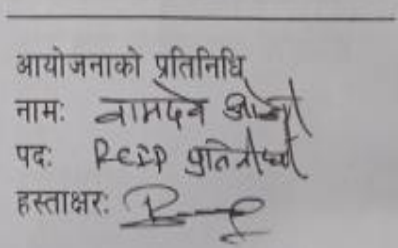 आयोजनाको प्रतिनिधि
नाम: वामदेव ओली
पद: RCIP प्रतिनिधी
हस्ताक्षर: